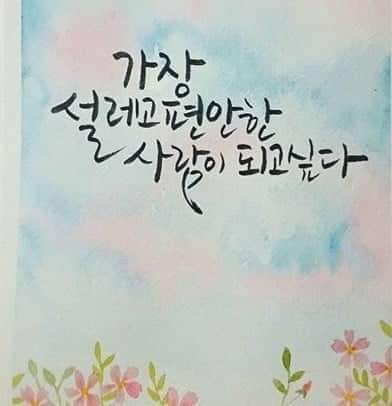 가장
설레고 편안한
사람이 되고싶다